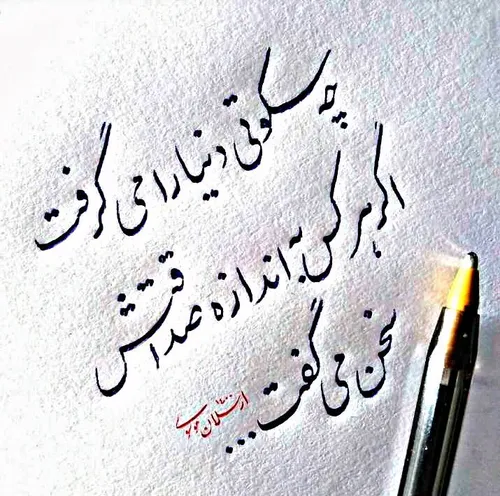 چه سکوتی دنیا را می گرفت
اگر هر کس به اندازه صداقتش
سخن می گفت...
ارسلان موسوی